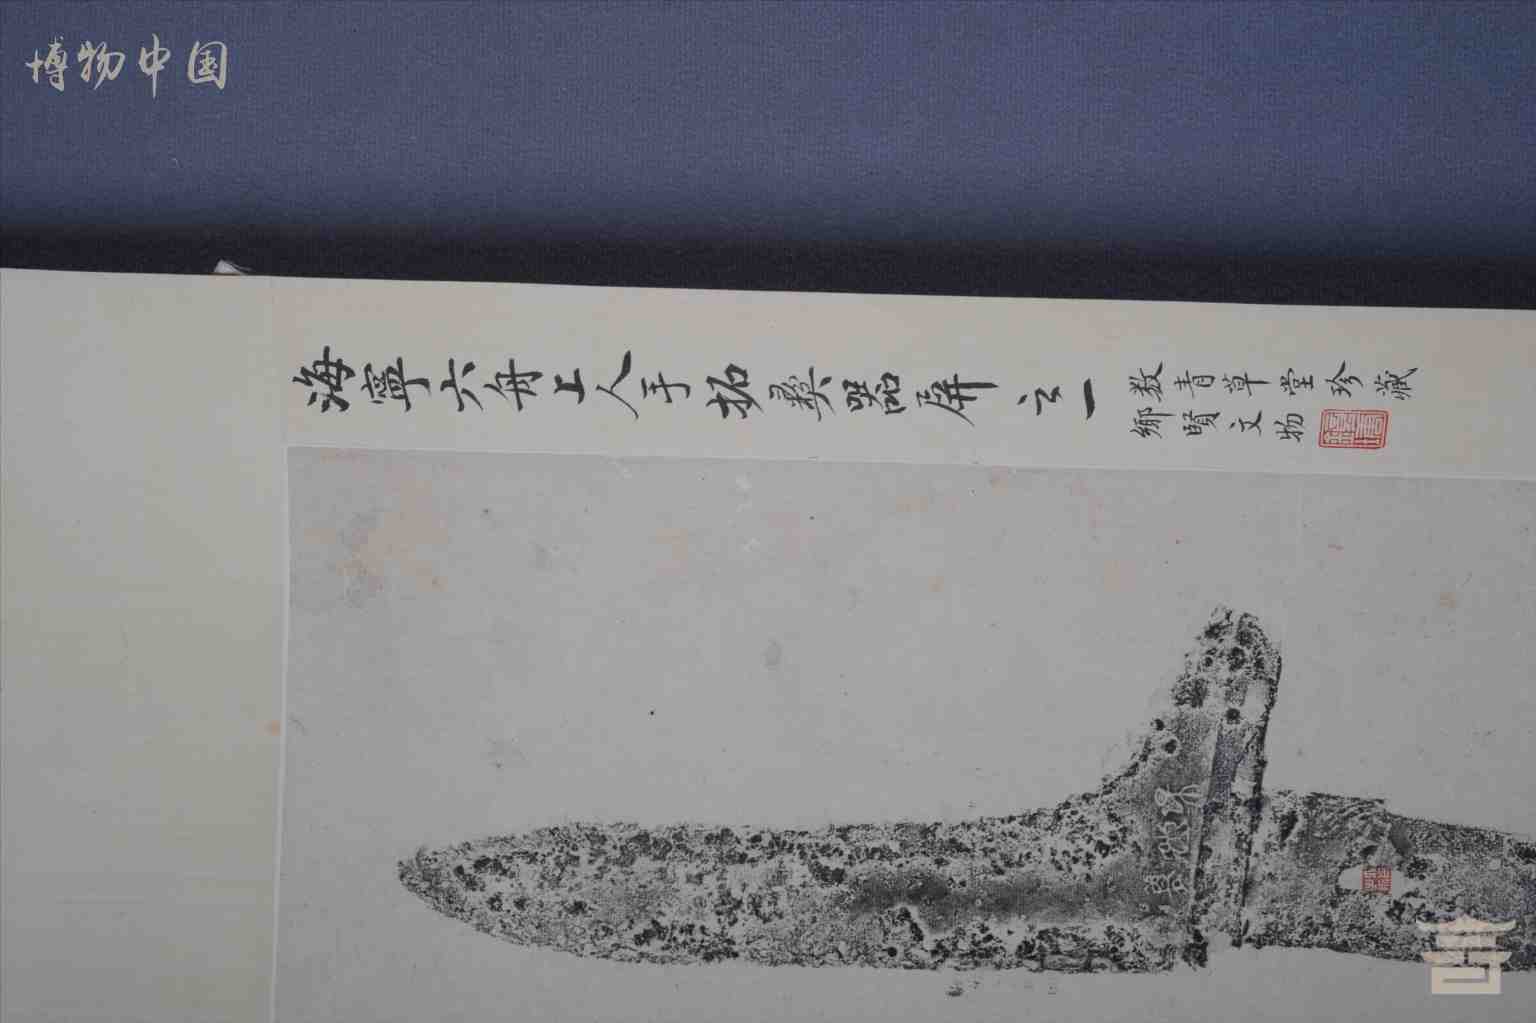 博物中国
海寧六舟上人手拓彝器屏之一
数青草堂珍藏
鄉賢文物